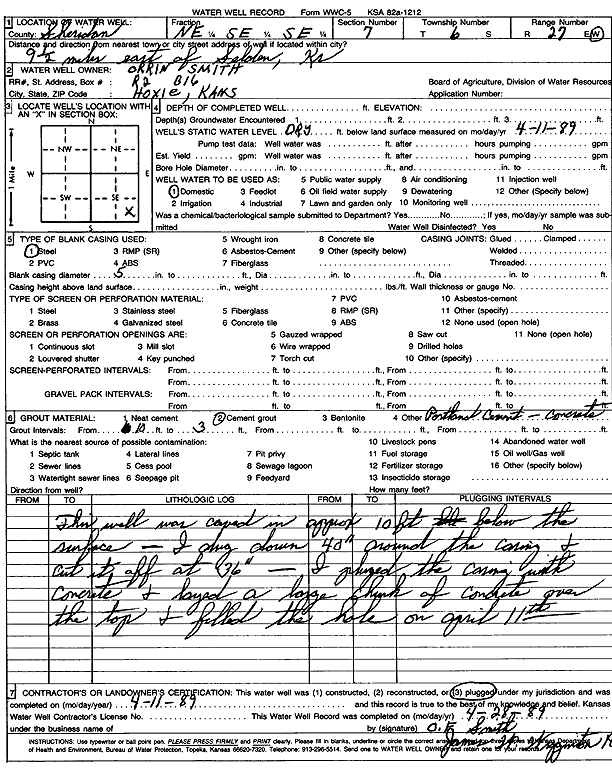 WATER WELL RECORD Form WWC-5 KSA 82a-1212
1 LOCATION OF WATER WELL: Fraction Section Number Township Number Range Number
County: Sheridan NE ¼ SE ¼ SE ¼ 7 T 6 S R 27 E/W
Distance and direction from nearest town or city street address of well if located within city?
9½ miles east of Selden, Ks
2 WATER WELL OWNER: ORRIN SMITH
RR#, St. Address, Box # : R2 B16 Board of Agriculture, Division of Water Resources
City, State, ZIP Code : HOXIE, KANS Application Number:
3 LOCATE WELL'S LOCATION WITH AN "X" IN SECTION BOX:
N
NW NE
W E
SW SE
X
S
1 Mile
4 DEPTH OF COMPLETED WELL ft. ELEVATION:
Depth(s) Groundwater Encountered 1. ft. 2. ft. 3. ft.
WELL'S STATIC WATER LEVEL DRY ft. below land surface measured on mo/day/yr 4-11-89
Pump test data: Well water was ft. after hours pumping gpm
Est. Yield gpm: Well water was ft. after hours pumping gpm
Bore Hole Diameter in. to ft., and in. to ft.
WELL WATER TO BE USED AS: 5 Public water supply 8 Air conditioning 11 Injection well
1 Domestic 3 Feedlot 6 Oil field water supply 9 Dewatering 12 Other (Specify below)
2 Irrigation 4 Industrial 7 Lawn and garden only 10 Monitoring well
Was a chemical/bacteriological sample submitted to Department? Yes No ; If yes, mo/day/yr sample was submitted Water Well Disinfected? Yes No
5 TYPE OF BLANK CASING USED: 5 Wrought iron 8 Concrete tile CASING JOINTS: Glued Clamped
1 Steel 3 RMP (SR) 6 Asbestos-Cement 9 Other (specify below) Welded
2 PVC 4 ABS 7 Fiberglass Threaded
Blank casing diameter 5 in. to ft., Dia in. to ft., Dia in. to ft.
Casing height above land surface in., weight lbs./ft. Wall thickness or gauge No.
TYPE OF SCREEN OR PERFORATION MATERIAL: 7 PVC 10 Asbestos-cement
1 Steel 3 Stainless steel 5 Fiberglass 8 RMP (SR) 11 Other (specify)
2 Brass 4 Galvanized steel 6 Concrete tile 9 ABS 12 None used (open hole)
SCREEN OR PERFORATION OPENINGS ARE: 5 Gauzed wrapped 8 Saw cut 11 None (open hole)
1 Continuous slot 3 Mill slot 6 Wire wrapped 9 Drilled holes
2 Louvered shutter 4 Key punched 7 Torch cut 10 Other (specify)
SCREEN-PERFORATED INTERVALS: From ft. to ft., From ft. to ft.
From ft. to ft., From ft. to ft.
GRAVEL PACK INTERVALS: From ft. to ft., From ft. to ft.
From ft. to ft., From ft. to ft.
6 GROUT MATERIAL: 1 Neat cement 2 Cement grout 3 Bentonite 4 Other Portland Cement - Concrete
Grout Intervals: From 10 ft. to 3 ft., From ft. to ft., From ft. to ft.
What is the nearest source of possible contamination: 10 Livestock pens 14 Abandoned water well
1 Septic tank 4 Lateral lines 7 Pit privy 11 Fuel storage 15 Oil well/Gas well
2 Sewer lines 5 Cess pool 8 Sewage lagoon 12 Fertilizer storage 16 Other (specify below)
3 Watertight sewer lines 6 Seepage pit 9 Feedyard 13 Insecticide storage
Direction from well? How many feet?
FROM TO LITHOLOGIC LOG FROM TO PLUGGING INTERVALS
This well was caved in approx 10 ft below the
surface - I dug down 40" around the casing &
cut it off at 36" - I pluged the casing with
concrete & layed a large chunk of concrete over
the top & filled the hole on april 11th
7 CONTRACTOR'S OR LANDOWNER'S CERTIFICATION: This water well was (1) constructed, (2) reconstructed, or (3) plugged under my jurisdiction and was
completed on (mo/day/year) 4-11-89 and this record is true to the best of my knowledge and belief. Kansas
Water Well Contractor's License No. This Water Well Record was completed on (mo/day/yr) 4-28-89
under the business name of by (signature) O.E. Smith
INSTRUCTIONS: Use typewriter or ball point pen. PLEASE PRESS FIRMLY and PRINT clearly. Please fill in blanks, underline or circle the correct
of Health and Environment, Bureau of Water Protection, Topeka, Kansas 66620-7320, Telephone: 913-296-5514. Send one to WATER WELL OWNER and retain one for your records.